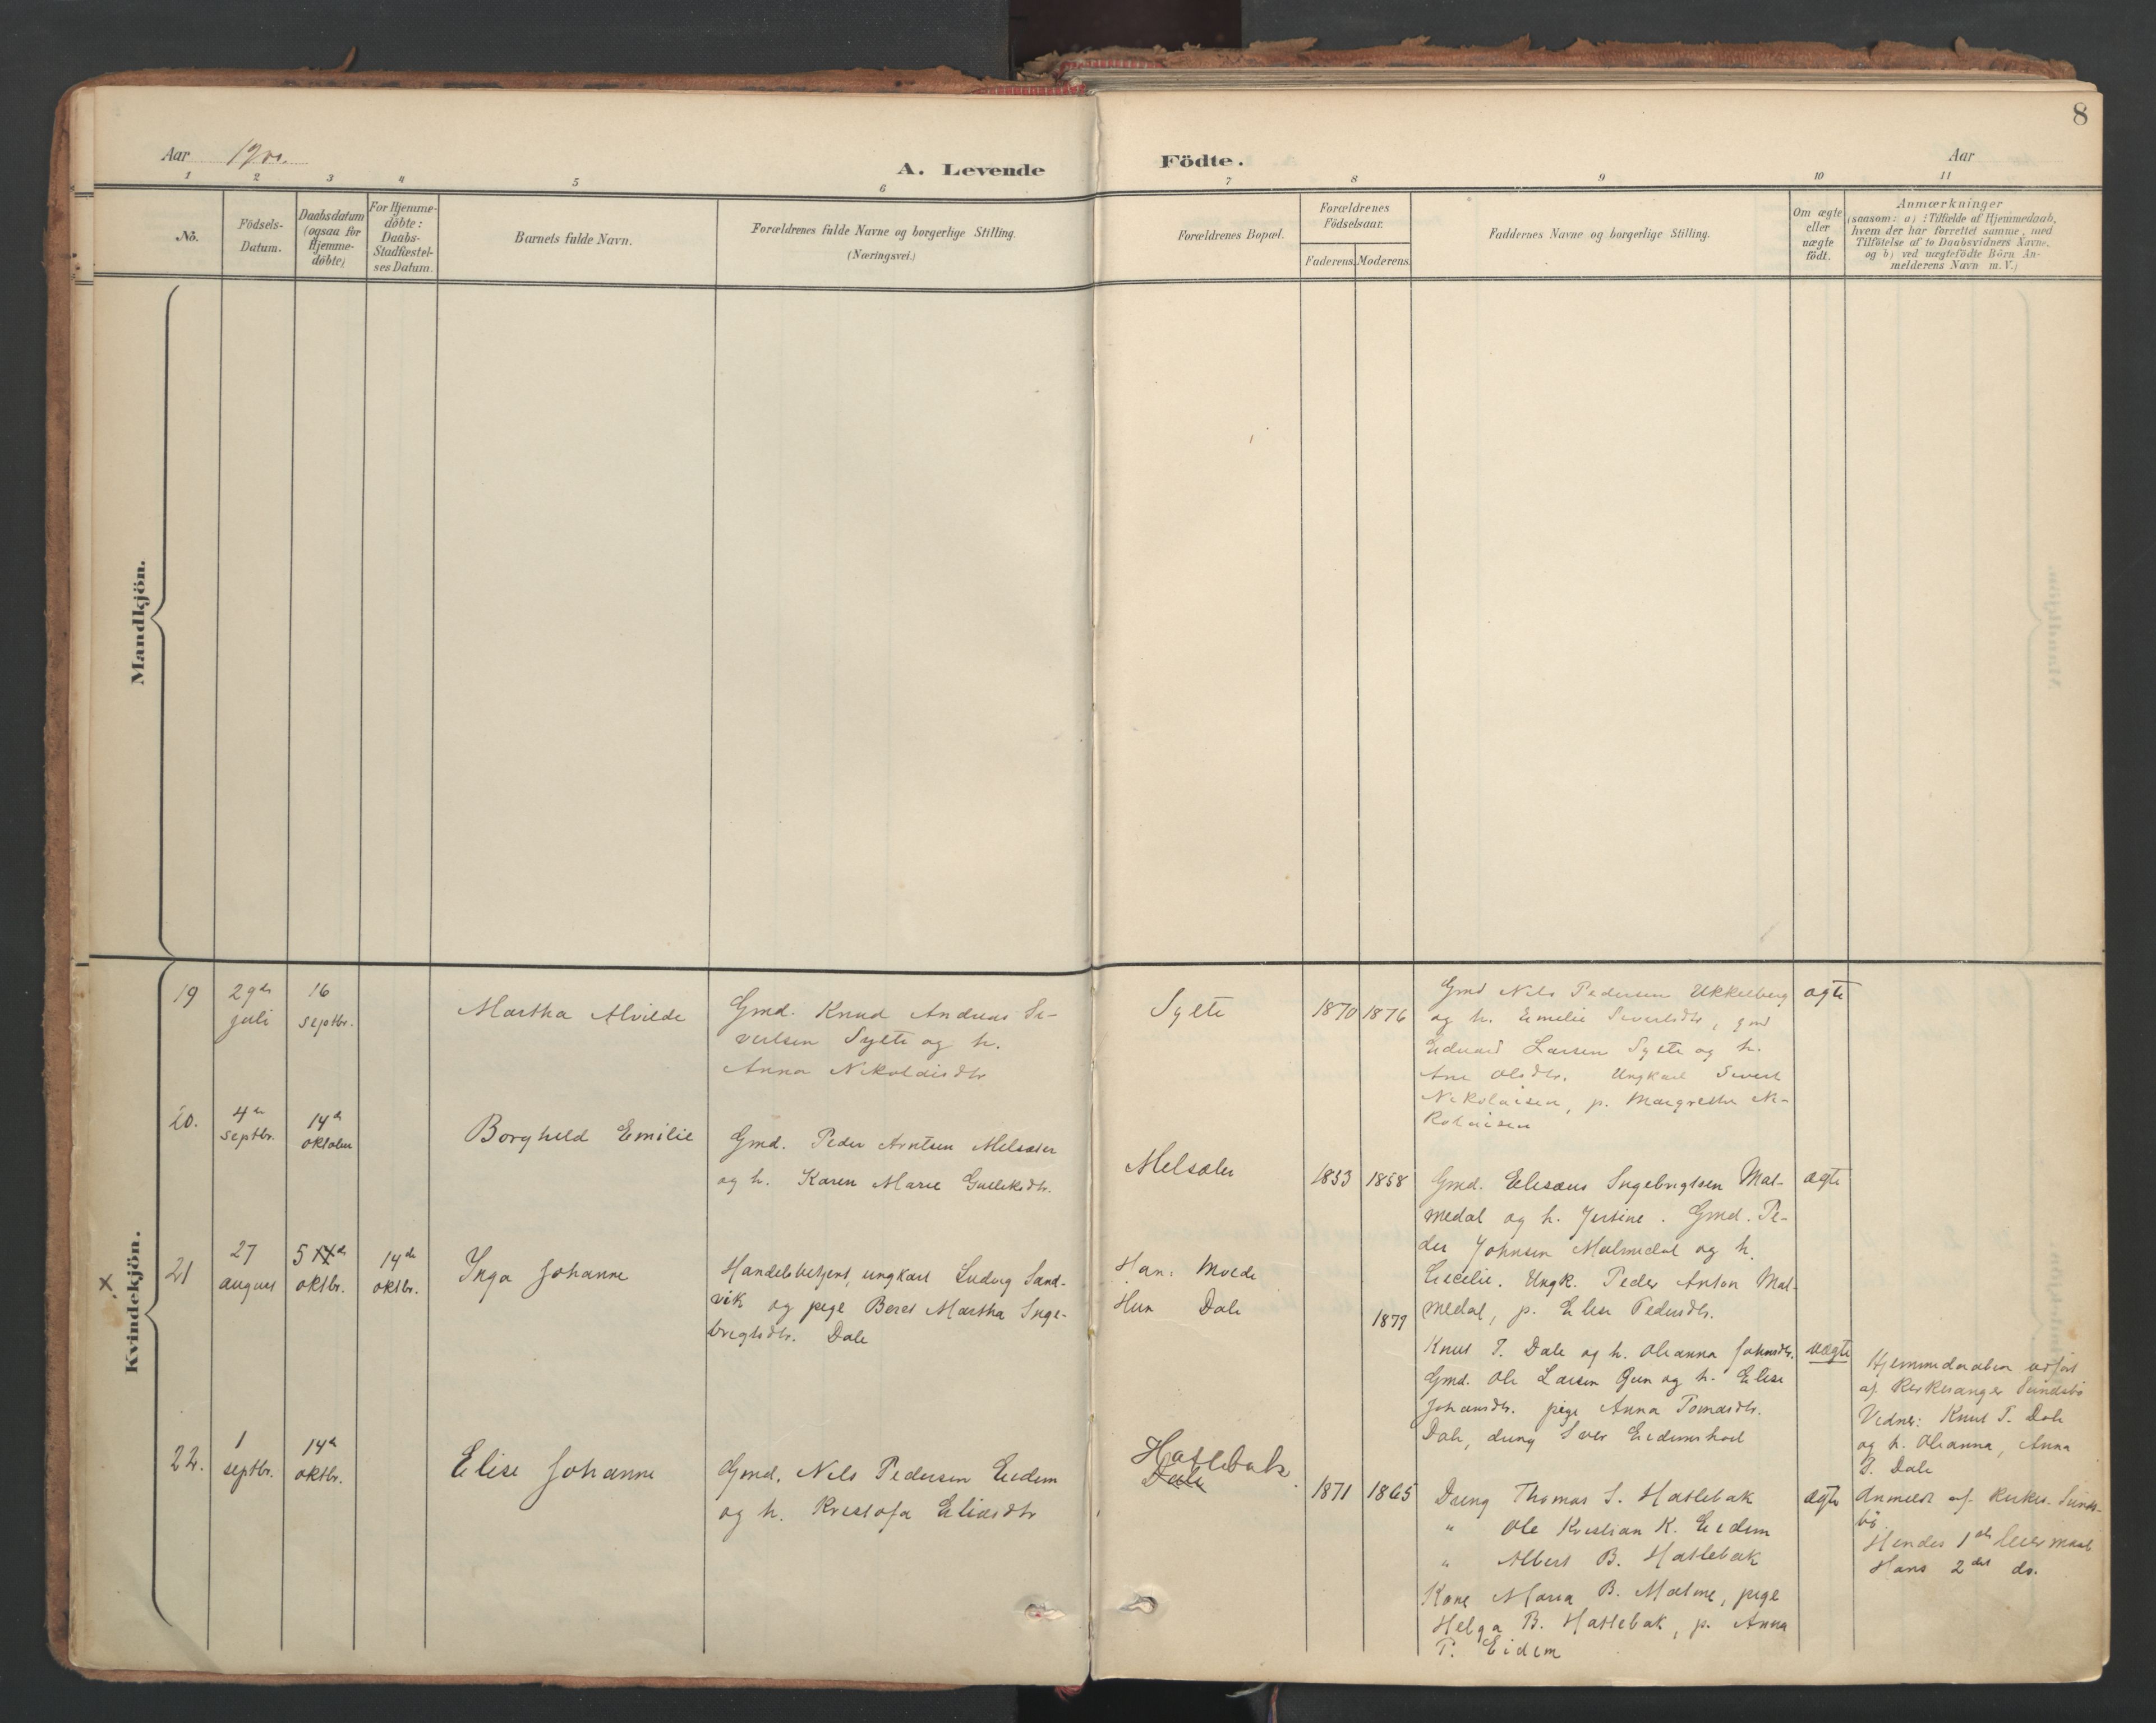 8
Aar 1900.
A. Levende
Födte.
Aar
1 2 3 4 5 6 7 8 9 10 11
No.
Födsels-
Datum.
Daabsdatum
(ogsaa for
Hjemme-
döbte).
For Hjemme-
döbte:
Daabs-
Stadfæstel-
ses Datum.
Barnets fulde Navn.
Forældrenes fulde Navne og borgerlige Stilling.
(Næringsvei.)
Forældrenes Bopæl.
Forældrenes
Födselsaar.
Faderens.
Moderens.
Faddernes Navne og borgerlige Stilling.
Om ægte
eller
uægte
födt.
Anmærkninger
(saasom: a) : Tilfælde af Hjemmedaab,
hvem der har forrettet samme, med
Tilföielse af to Daabsvidners Navne.
og b) ved uægtefödte Börn An-
melderens Navn m. V.)
Mandkjön.
Kvindekjön.
19
29de
juli
16
septbr.
Martha Alvilde
Gmd. Knud Andreas Si-
vertsen Sylte og h.
Anna Nikolaisdtr
Sylte
1870
1876
Gmd Nils Pedersen Ukkelberg
og h. Emelie Sivertsdtr, gmd
Eduard Larsen Sylte og h.
Ane Olsdtr. Ungkarl Sivert
Nikolaisen, p. Margrethe Ni-
kolaisen
ægte
20.
4de
septbr.
14de
oktober
Borghild Emilie
Gmd. Peder Arntsen Melsæter
og h. Karen Marie Gulleksdtr.
Melsæter
1853
1858
Gmd. Elesæus Ingebrigtsen Mal-
medal og h. Jertine. Gmd. Pe-
der Johnsen Malmedal og h.
Cecelie. Ungk. Peder Anton Mal-
medal, p. Elen Pedersdtr.
ægte
x
21
27
august
5
oktbr.
14de
oktbr.
Inga Johanne
Handelsbetjent, ungkarl Ludvig Sand-
vik og pige Beret Martha Inge-
brigtsdtr. Dale
Han: Molde
Hun Dale
1879
Knut T. Dale og h. Oleanna Johnsdtr.
Gmd. Ole Larsen Gjen og h. Elise
Johansdtr. pige Anna Tomasdtr.
Dale, dreng Iver Eidemshoel
uægte
Hjemmedaaben udfört
af kirkesanger Sundsbö
Vidner: Knut T. Dale
og h. Oleanna, Anna
T. Dale
Anmeldt af kirkes. Sunds-
bö.
Hendes 1ste leiermaal
Hans 2det do.
22.
1
septbr.
14de
oktbr.
Elise Johanne
Gmd. Nils Pedersen Eidem
og h. Kristofa Eliasdtr
Hatlebak
Dale
1871
1865
Dreng Thomas S. Hatlebak
" Ole Kristian K. Eidem
" Albert B. Hatlebak
Kone Maria B. Malme, pige
Helga B. Hatlebak, p. Anna
P. Eidem
ægte